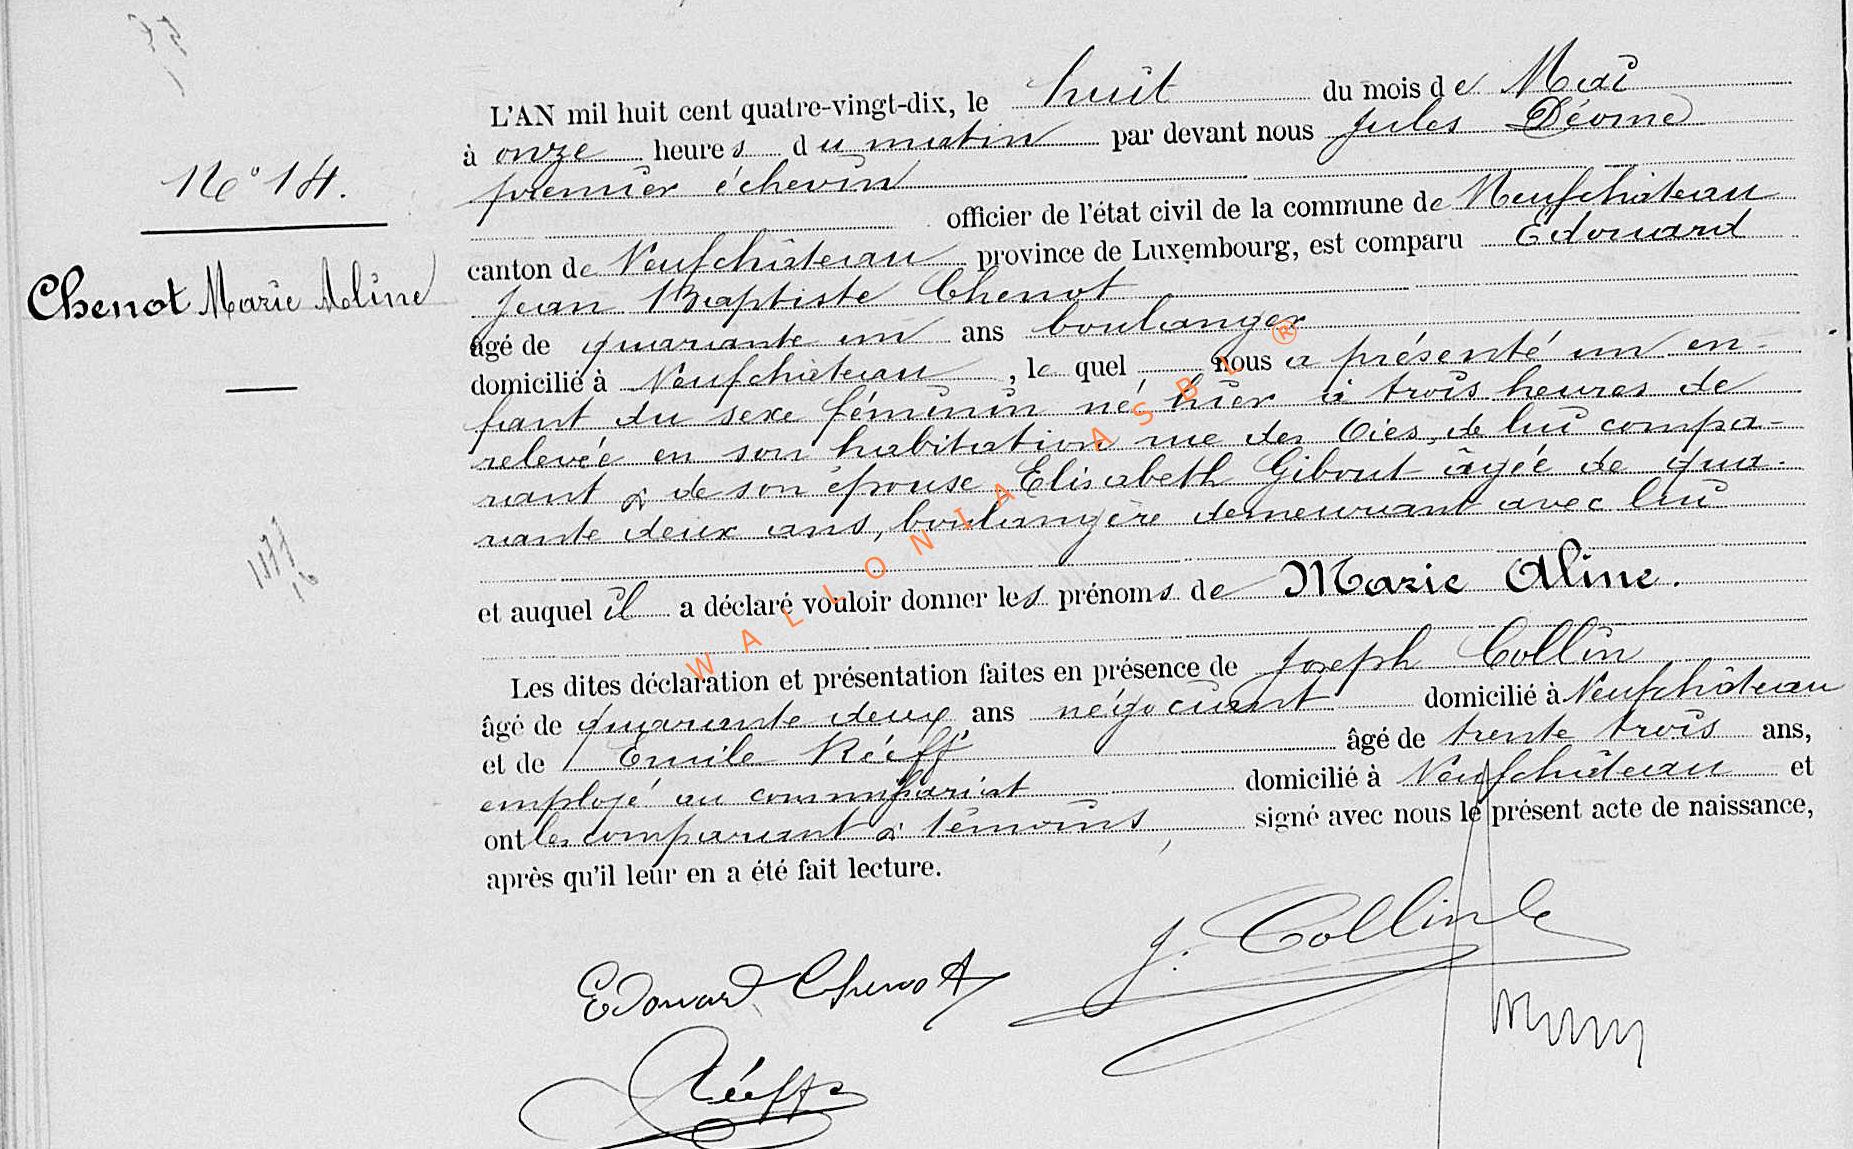 L'AN mil huit cent quatre-vingt-dix, le huit du mois de Mai
à onze heures du matin par devant nous Jules Déome
premier échevin
officier de l'état civil de la commune de Neufchâteau
canton de Neufchâteau province de Luxembourg, est comparu Edouard
Jean Baptiste Chenot
âgé de quarante un ans boulanger
domicilié à Neufchâteau, le quel nous a présenté un en-
fant du sexe féminin né, hier à trois heures de
relevée en son habitation rue des Oies, de lui compa-
rant & de son épouse Elisabeth Gibout âgée de qua-
rante deux ans, boulangère demeurant avec lui
et auquel il a déclaré vouloir donner les prénoms de Marie Aline.
Les dites déclaration et présentation faites en présence de Joseph Collin
âgé de quarante deux ans négociant domicilié à Neufchâteau
et de Emile Réeff âgé de trente trois ans,
employé au commissariat domicilié à Neufchâteau et
ont les comparant & témoins, signé avec nous le présent acte de naissance,
après qu'il leur en a été fait lecture.
N° 14.
Chenot Marie Aline
Edouard Chenot
J. Collin
Réeff
WALLONIA ASBL ®